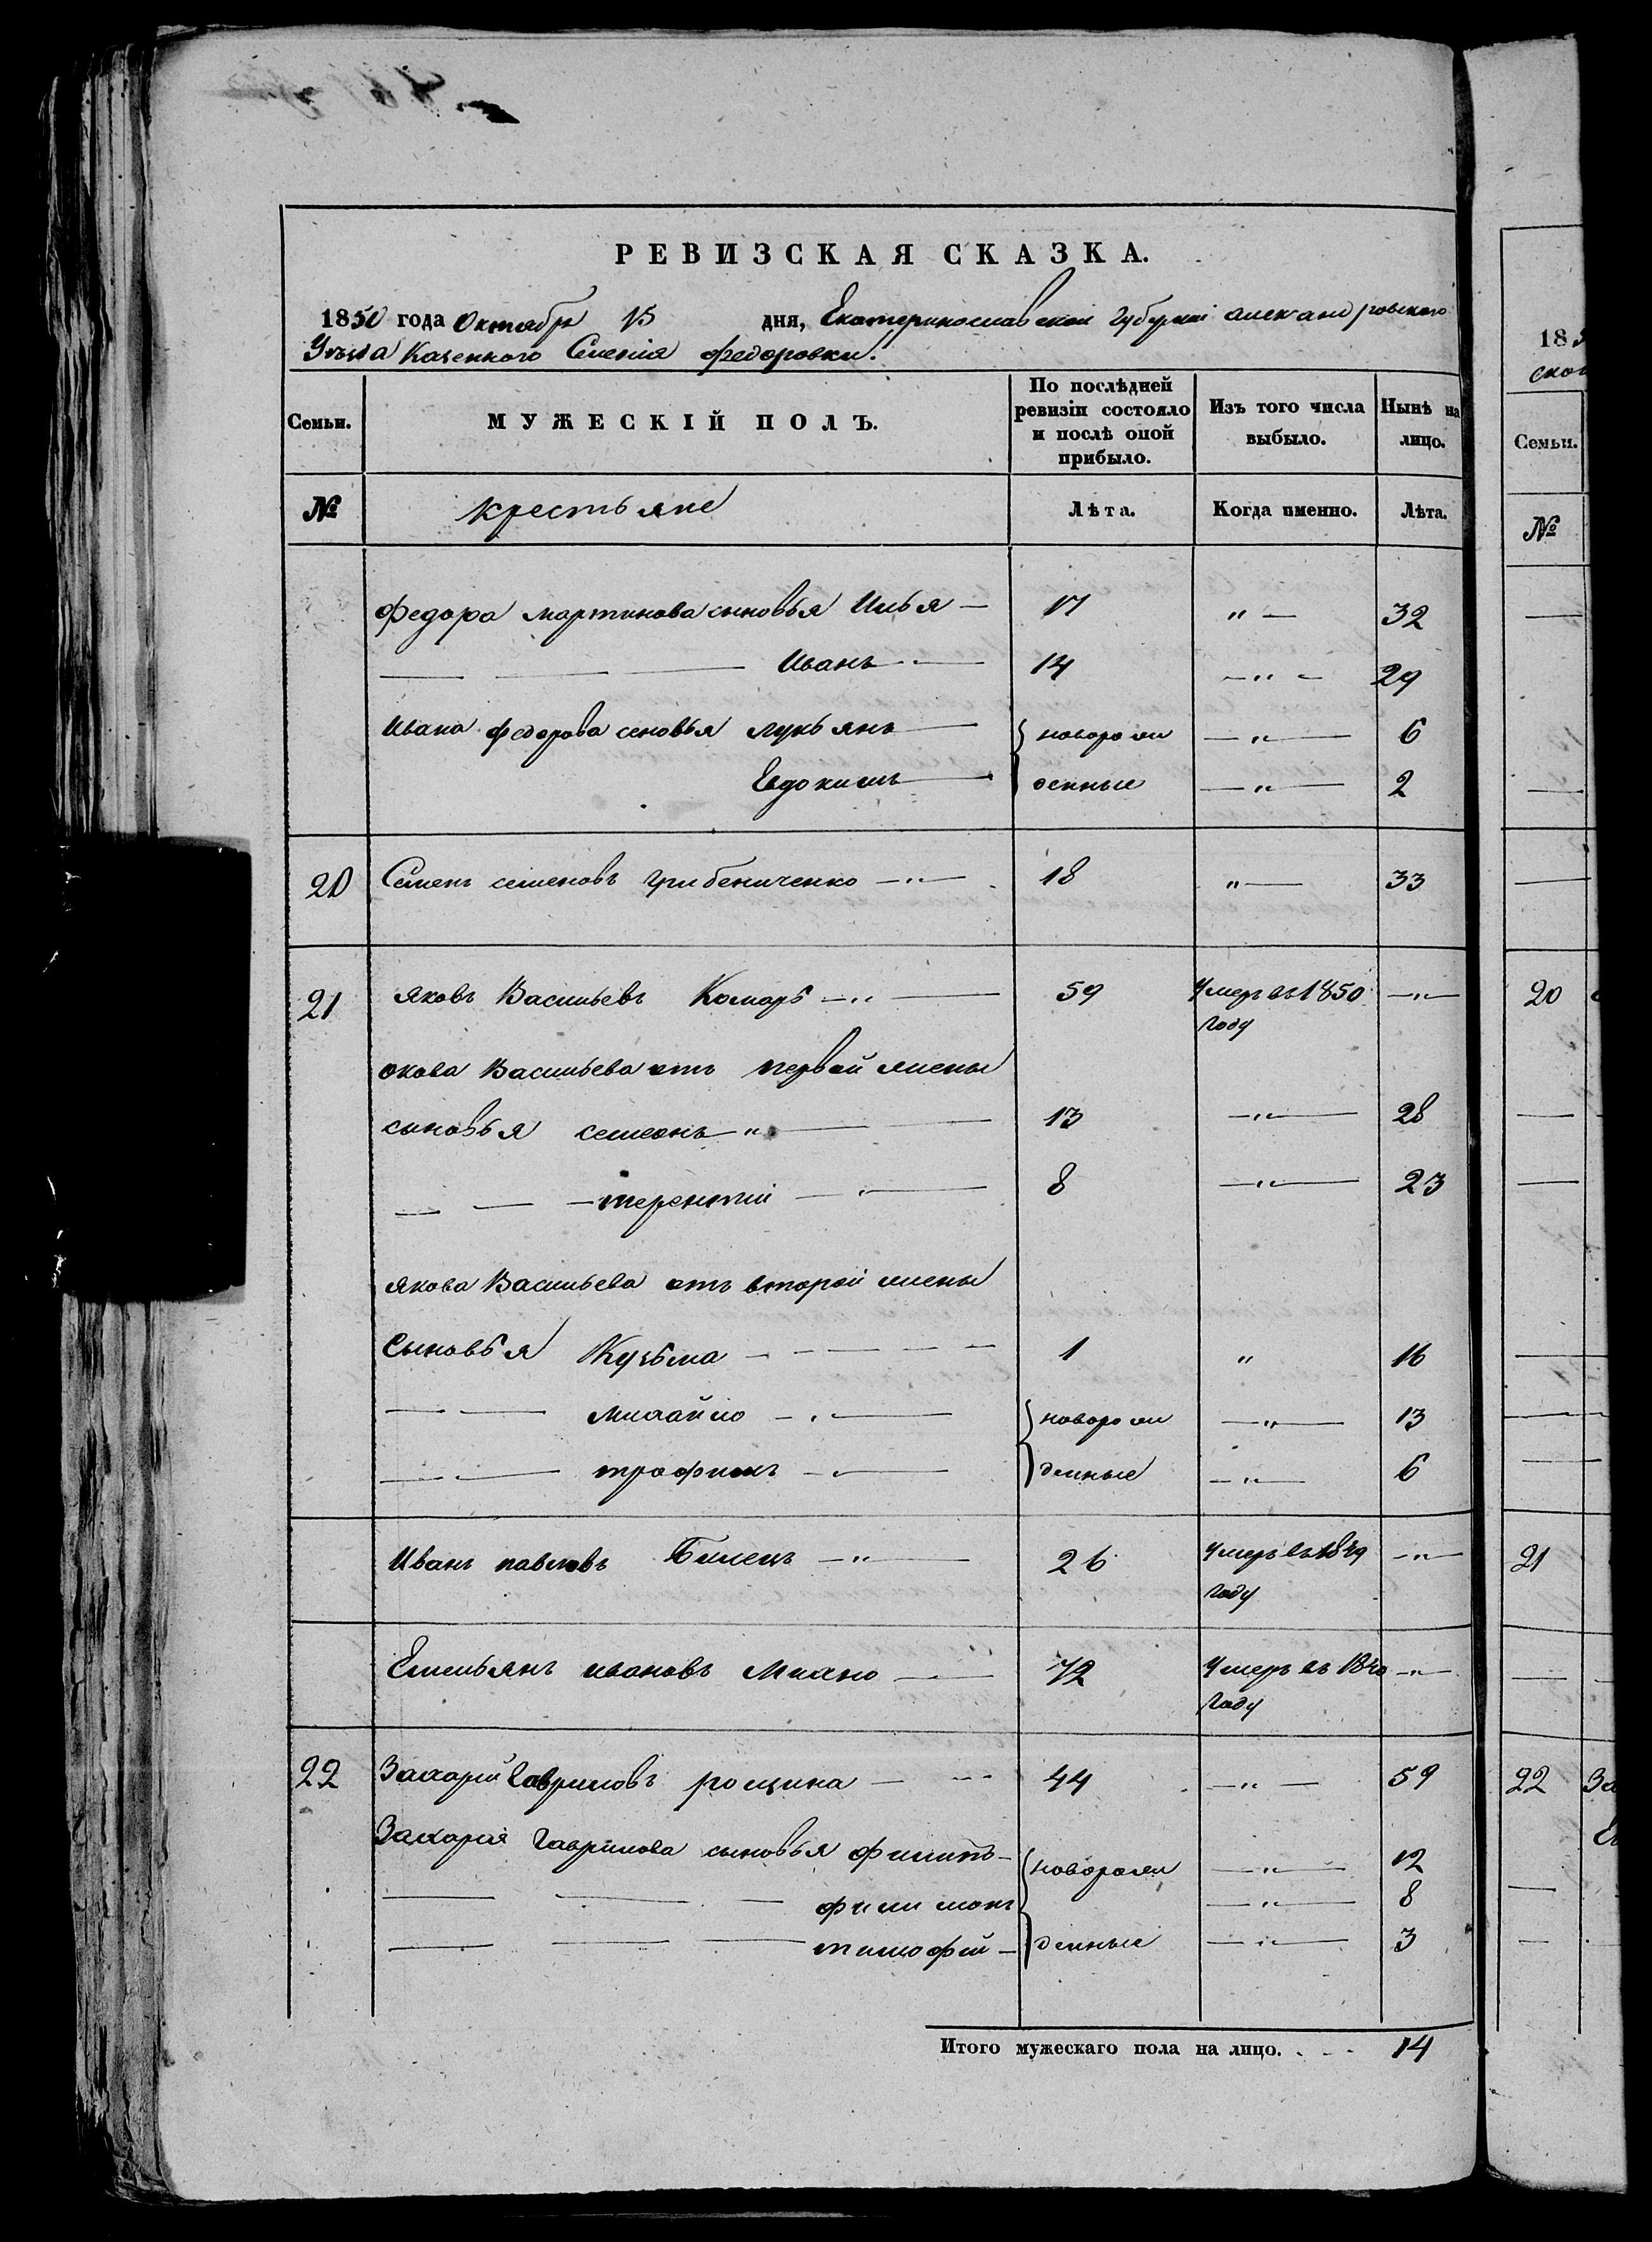 РЕВИЗСКАЯ СКАЗКА.
1850 года Октября 15 дня, Екатеринославской Губерніи Александровского
Уезда Казенного Селенія Федоровки.
Семьи. МУЖЕСКІЙ ПОЛЪ. По послѣдней ревизіи состояло и послѣ оной прибыло. Изъ того числа выбыло. Нынѣ на лицо.
№ крестьяне Лѣта. Когда именно. Лѣта.
Федора мартинова сыновья Илья — 17 " — 32
— — — Иванъ — 14 — " — 29
Ивана федорова сеновья лукьянъ — новорож — " — 6
Евдокимъ — денные — " — 2
20 Семенъ семеновъ Грибениченко — " — 18 " — 33
21 яковъ Васильевъ Комаръ — " — 59 Умеръ въ 1850 — " —
году
якова Васильева отъ первой жены
сыновья семеонъ — " — 13 — " — 28
— — — терентій — " — 8 — " — 23
якова Васильева отъ второй жены
Сыновья Кузьма — — — — — 1 " 16
— — михайло — " — новорож — " — 13
— — трофимъ — " — денные — " — 6
Иванъ павловъ Билецъ — " — 26 Умеръ въ 1849 — " —
году
Емельянъ ивановъ Михно — 72 Умеръ въ 1840 — " —
году
22 Захарій Гавриловъ рощина — — 44 — " — 59
Захарія Гаврилова сыновья филипъ — новорож — " — 12
— — — филимонъ — " — 8
— — — тимофій — денные — " — 3
Итого мужескаго пола на лицо. . - - 14
18
Семьи.
№
20
21
22 За